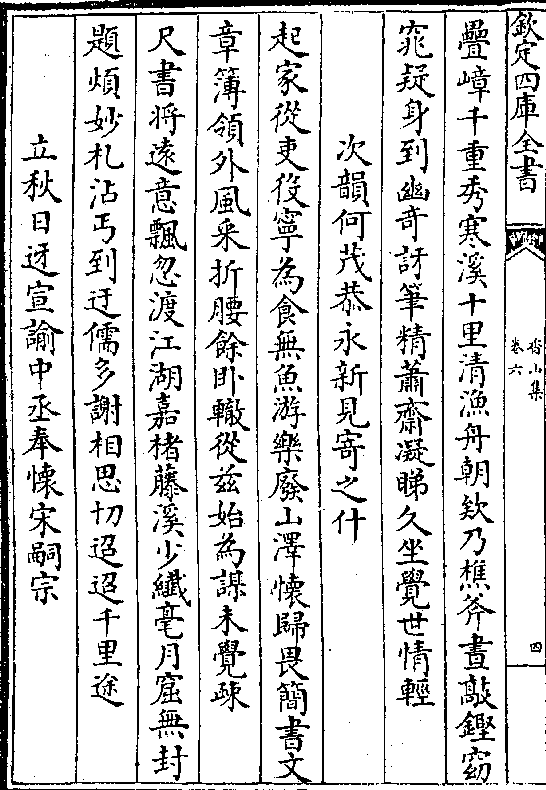 欽定四庫全書
香山集
卷六
四
疊嶂千重秀寒溪十里清漁舟朝欸乃樵斧晝敲鏗窈
窕疑身到幽奇訝筆精蕭齋凝睇久坐覺世情輕
次韻何茂恭永新見寄之什
起家從吏役寧為食無魚游樂廢山澤懷歸畏簡書文
章簿領外風采折腰餘卧轍從兹始為謀未覺疎
尺書將逺意飄忽渡江湖嘉楮藤溪少纎毫月窟無封
題煩妙札沾丐到迂儒多謝相思切迢迢千里途
立秋日迓宣諭中丞奉懷宋嗣宗